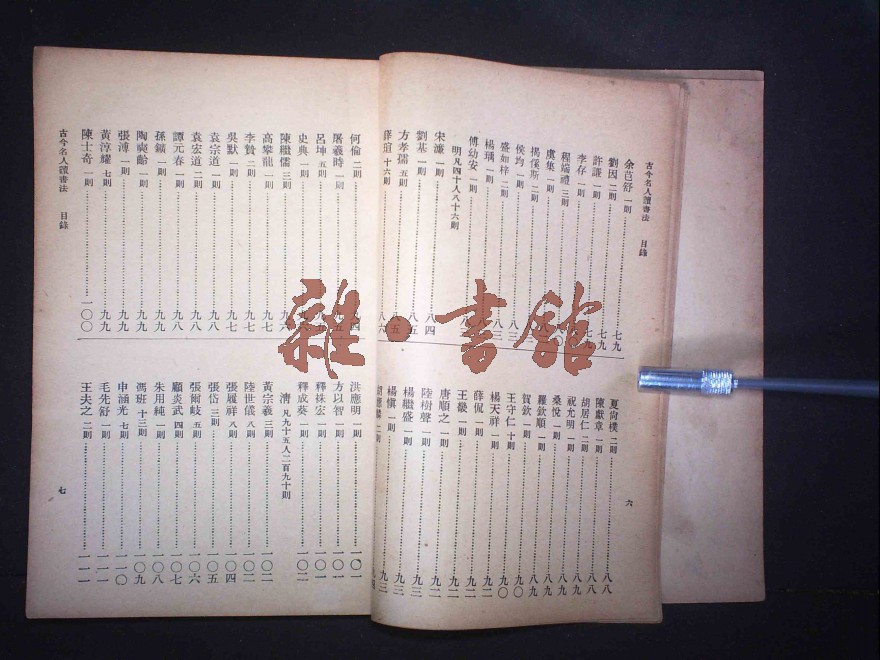 古今名人讀書法 目錄
余芑舒 一則 七九
劉因 二則 七九
許謙 一則 七九
李存 一則
程端禮 三則
虞集 一則
揭傒斯 二則
侯均 一則 八三
盛如梓 二則 八三
楊瑀 一則
傅幼安 一則
明 凡四十人八十六則
宋濂 一則 八四
劉基 一則 八五
方孝孺 五則 八五
薛瑄 十六則 八六
夏尚樸 二則 八八
陳獻章 一則 八八
胡居仁 二則 八九
祝允明 一則 八九
桑悅 一則 八九
羅欽順 一則 八九
賀欽 一則 九〇
王守仁 十則 九〇
楊天祥 一則 九二
薛侃 一則 九二
王鏊 一則 九二
唐順之 一則 九二
陸樹聲 一則 九二
楊繼盛 一則 九三
楊慎 一則 九三
胡應麟 二則 九三
六
何倫 二則 九四
屠羲時 一則 九五
呂坤 五則
史典 一則
陳繼儒 三則 九六
高攀龍 一則 九七
李贄 二則 九七
吳默 一則 九七
袁宗道 一則 九八
袁宏道 二則 九八
譚元春 一則 九八
孫鑛 一則 九九
陶奭齡 一則 九九
張溥 一則 九九
黃淳耀 七則 九九
陳士奇 一則 一〇〇
古今名人讀書法 目錄
洪應明 一則 一〇一
方以智 一則 一〇一
釋袾宏 一則 一〇一
釋成葵 一則 一〇二
清 凡九十五人二百九十則
黃宗羲 三則 一〇二
陸世儀 八則 一〇二
張履祥 八則 一〇四
張岱 三則 一〇五
張爾岐 五則 一〇六
顧炎武 四則 一〇七
朱用純 一則 一〇八
馮班 十三則 一〇九
申涵光 七則 一一〇
毛先舒 一則 一一一
王夫之 二則 一一一
七
雜·書館